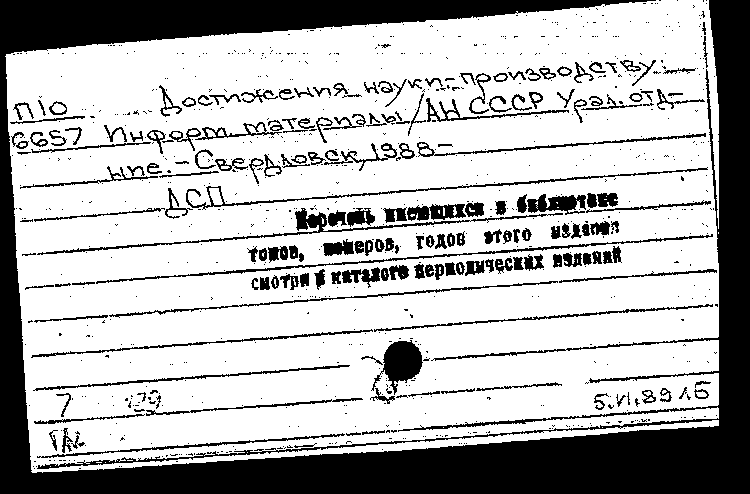 П10 Достижения науки - производству:
6657 Информ. материалы / АН СССР Урал. отд-
ние. - Свердловск, 1988-
ДСП
Перечень имеющихся в библиотеке
томов, номеров, годов этого издания
смотри в каталоге периодических изданий
7
5.VI.89 1Б